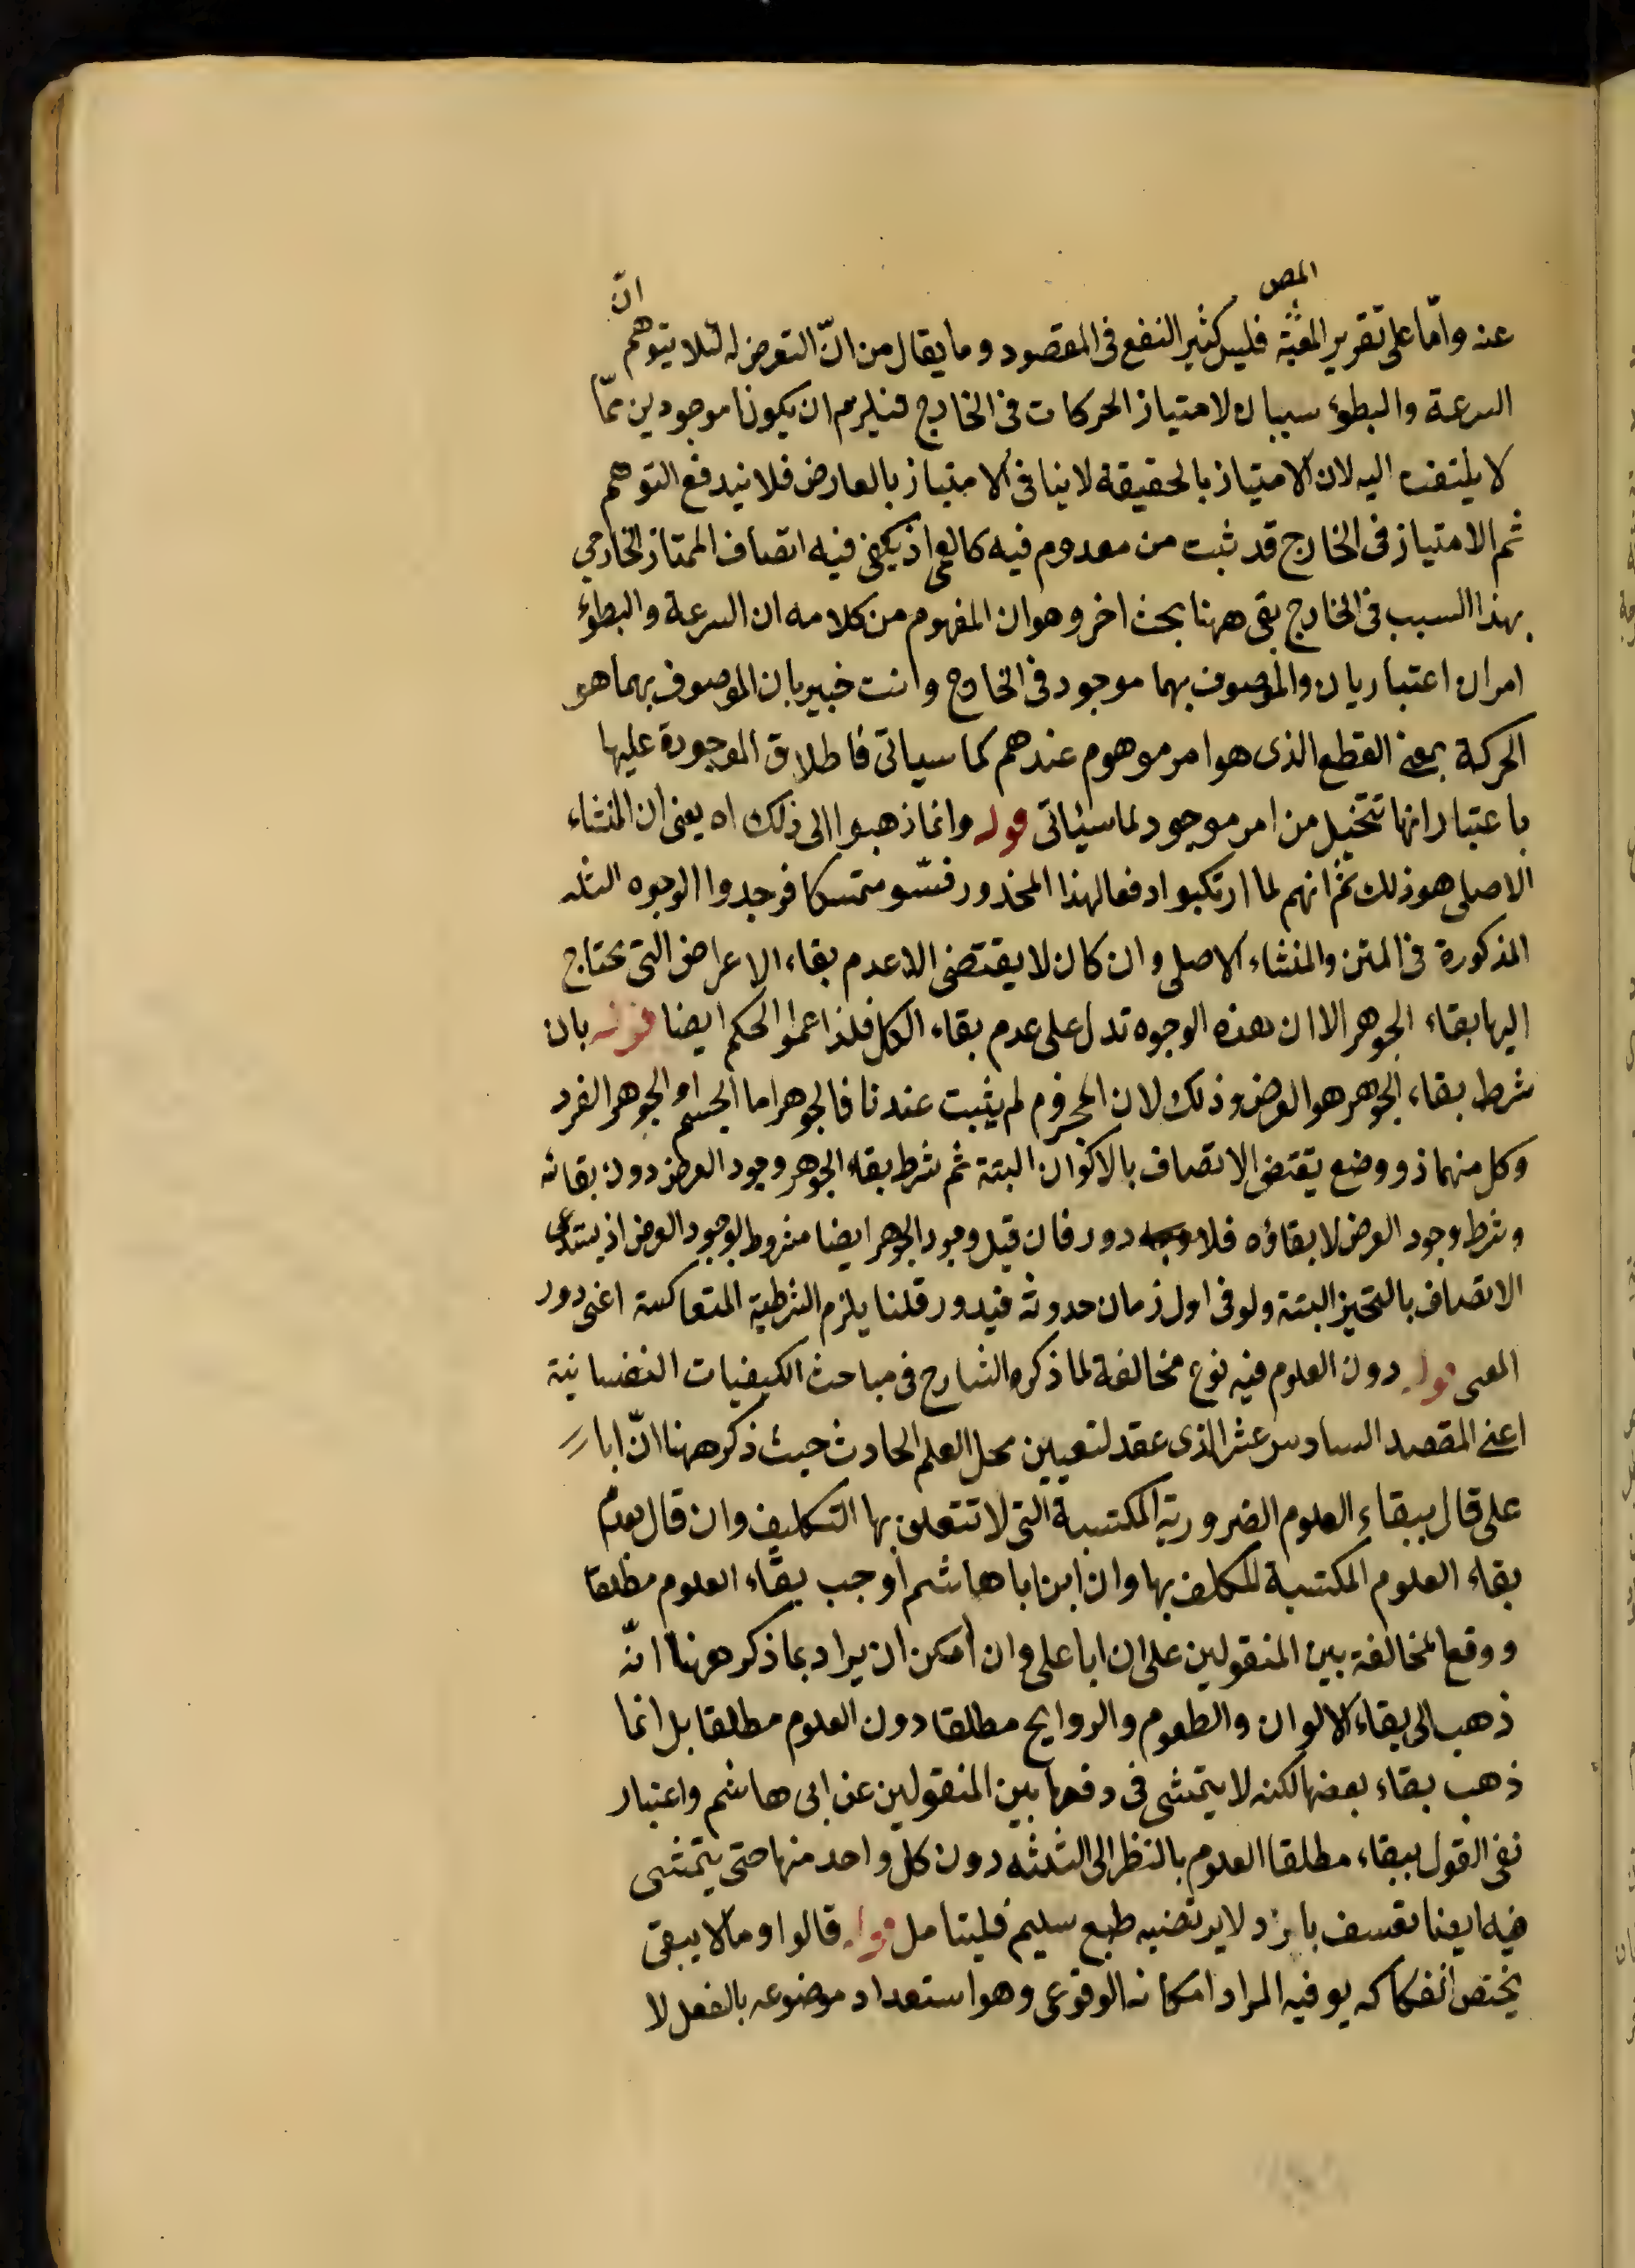 المص
عنه واما على تقرير المص فليس كثير النفع فى المقصود وما يقال من انّ التعرض له لئلا يتوهم انّ
السرعة والبطوء سببان لامتياز الحركات فى الخارج فيلزم ان يكونا موجودين ممّا
لا يلتفت اليه لان الامتياز بالحقيقة لا ينافى الامتياز بالعارض فلا يندفع التوهم
ثم الامتياز فى الخارج قد ثبت من معدوم فيه كالعمى اذ يكفى فيه اتصاف الممتاز الخارجى
بهذا السبب فى الخارج بقى ههنا بحث اخر وهو ان المفهوم من كلامه ان السرعة والبطوء
امران اعتباريان والموصوف بهما موجود فى الخارج وانت خبير بان الموصوف بهما هو
الحركة بمعنى القطع الذى هو امر موهوم عندهم كما سياتى فاطلاق الموجودة عليها
باعتبار انها تتخيل من امر موجود لما سيئاتى قوله وانما ذهبوا الى ذلك اه يعنى ان المنشاء
الاصلى هو ذلك ثم انهم لما ارتكبوا دفعا لهذا المحذور فتشوا متمسكا فوجدوا الوجوه الثلثه
المذكورة فى المتن والمنشاء الاصلى وان كان لا يقتضى الا عدم بقاء الاعراض التى يحتاج
اليها بقاء الجوهر الا ان هذه الوجوه تدل على عدم بقاء الكل فلذا عمموا الحكم ايضا قوله بان
شرط بقاء الجوهر هو العرض وذلك لان المجرد لم يثبت عندنا فالجوهر اما الجسم او الجوهر الفرد
وكل منهما ذو وضع يقتضى الاتصاف بالاكوان البتة ثم شرط بقاء الجوهر وجود العرض دون بقائه
وشرط وجود العرض لا بقاؤه فلا دور فان قيل وجود الجوهر ايضا مشروط بوجود العرض اذ يستدعى
الاتصاف بالتحيز البتة ولو فى اول زمان حدوثه فيدور قلنا يلزم الشرطية المتعاكسة اعنى دور
المعى قوله دون العلوم فيه نوع مخالفة لما ذكره الشارح فى مباحث الكيفيات النفسانية
اعنى المقصد السادس عشر الذى عقد لتعيين محل العلم الحادث حيث ذكر ههنا انّ ابا
على قال ببقاء العلوم الضرورية المكتسبة التى لا تتعلق بها التكليف وان قال بعدم
بقاء العلوم المكتسبة المكلف بها وان ابن ابا هاشم اوجب بقاء العلوم مطلقا
ووقع المخالفة بين المنقولين على ان ابا على وان امكن ان يراد بما ذكر ههنا انّه
ذهب الى بقاء الالوان والطعوم والروايح مطلقا دون العلوم مطلقا بل انما
ذهب بقاء بعضها لكنه لا يتمشى فى دفعها بين المنقولين عن ابى هاشم واعتبار
نفى القول ببقاء مطلقا العلوم بالنظر الى الثلثه دون كل واحد منها حتى يتمشى
فيه ايضا تعسف بارد لا يرتضيه طبع سليم فليتامل قوله قالوا وما لا يبقى
يختص انفكاكه يو فيه المراد امكانه الوقوعى وهو استعداد موضوعه بالفعل لا